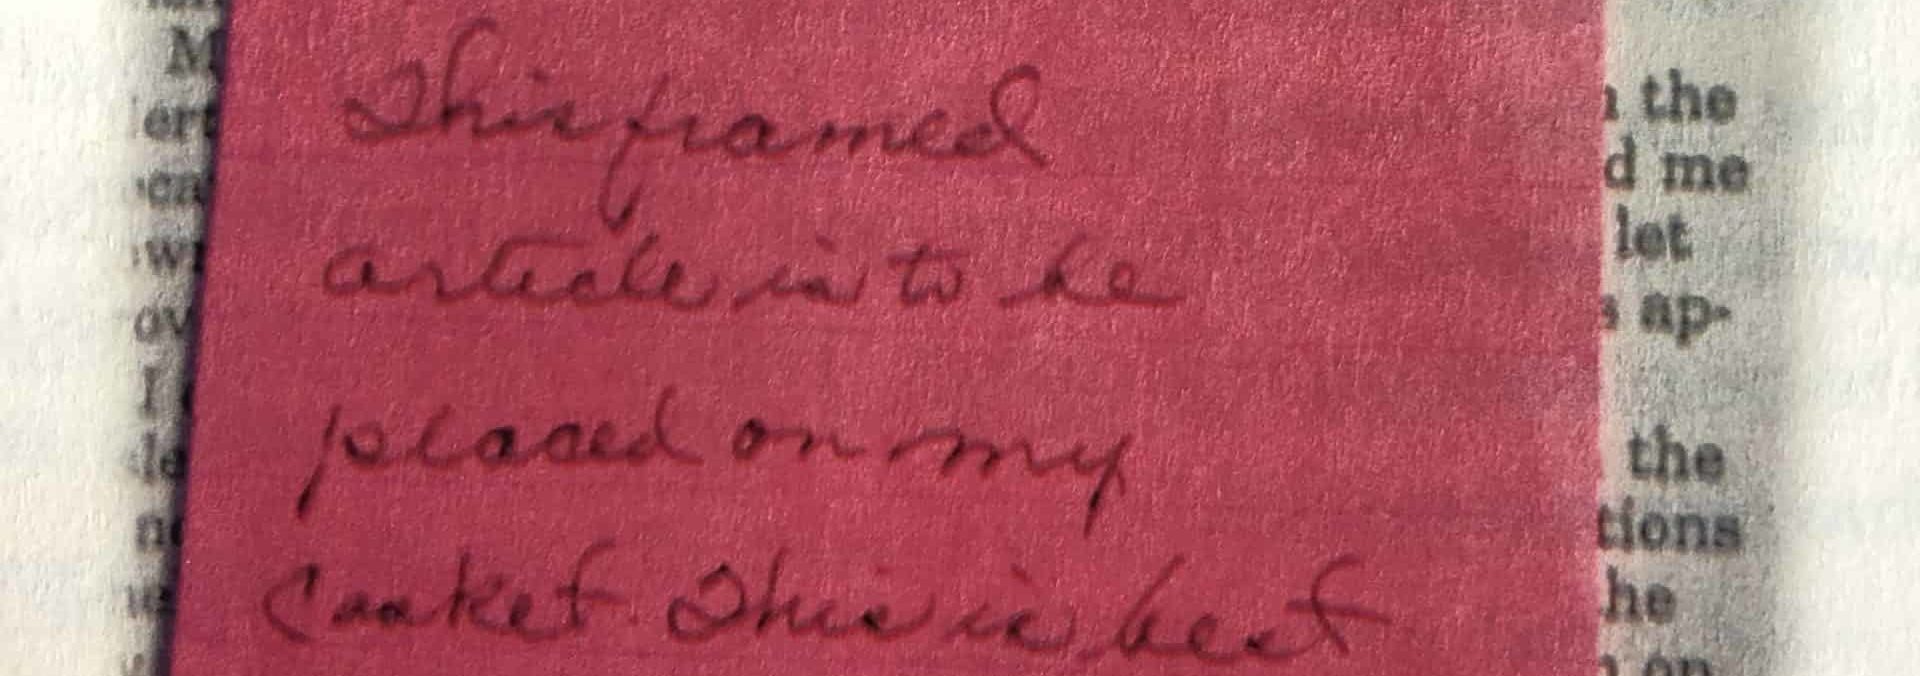 This framed
article is to be
placed on my
casket. This is best
the
d me
let
ap-
the
tions
he
on